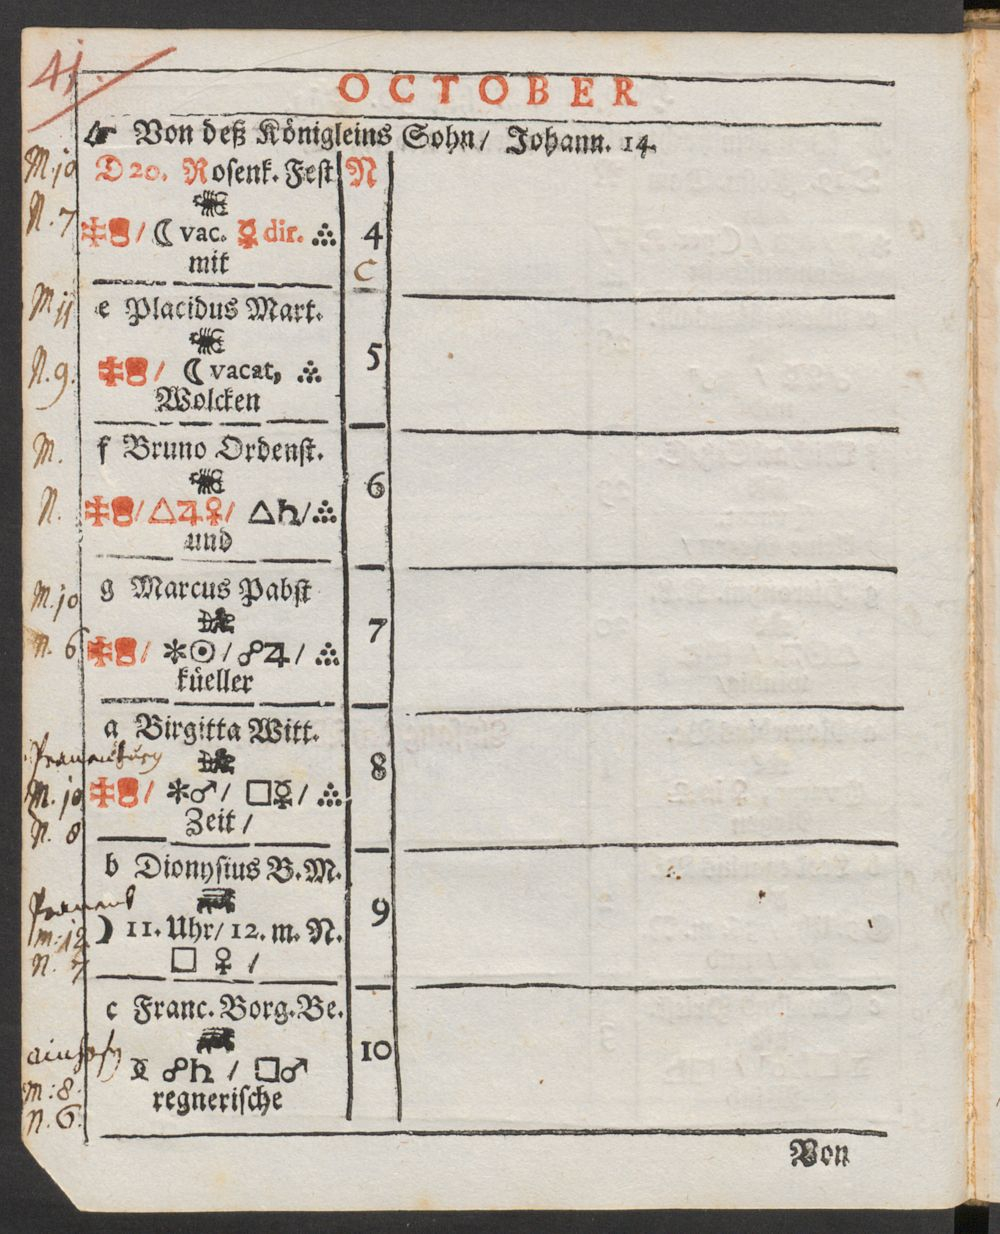 41.
OCTOBER
☞ Von deß Königleins Sohn/ Johann. 14.
M. 10 D 20. Rosenk. Fest N
N. 7 ☾ vac. ☿ dir. 4
mit C
M 11 e Placidus Mart.
N. 9. ☾ vacat, 5
Wolcken
M. f Bruno Ordenst.
N. △♃♀/ △♄/ 6
und
M. 10 g Marcus Pabst
N. 6 ✱☉/ ☍♃/ 7
küeller
a Birgitta Witt.
M. 10 ✱♂/ □☿/ 8
N. 8 Zeit/
b Dionysius B. M.
m: 12 ☽ 11. Uhr/ 12. m. N. 9
N. 7 □ ♀ /
c Franc. Borg. Be.
☍♄ / □♂ 10
m: 8. regnerische
n. 6.
Von